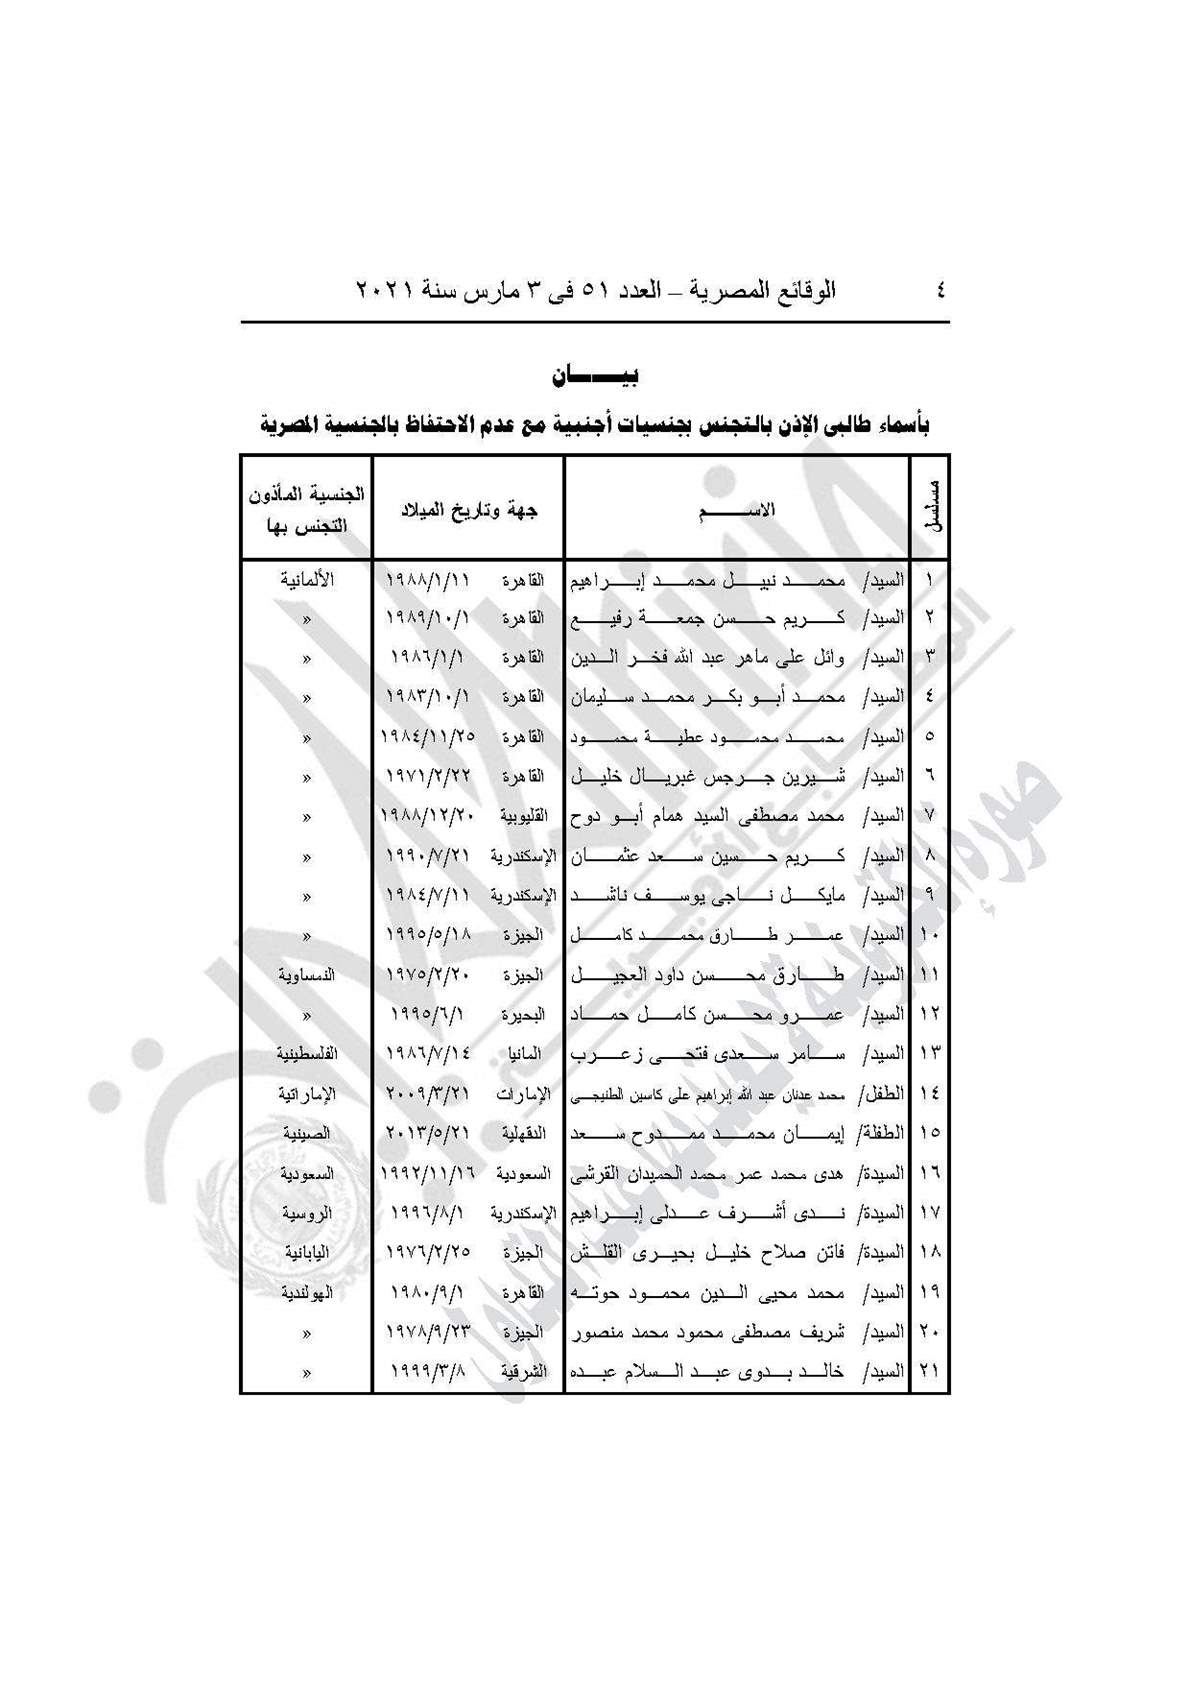 ٤ الوقائع المصرية – العدد ٥١ فى ٣ مارس سنة ٢٠٢١
بيـــــان
بأسماء طالبى الإذن بالتجنس بجنسيات أجنبية مع عدم الاحتفاظ بالجنسية المصرية
مسلسل الاســـــم جهة وتاريخ الميلاد الجنسية المأذون التجنس بها
١ السيد/ محمد نبيل محمد إبراهيم القاهرة ١٩٨٨/١/١١ الألمانية
٢ السيد/ كريم حسن جمعة رفيع القاهرة ١٩٨٩/١٠/١ »
٣ السيد/ وائل على ماهر عبد الله فخر الدين القاهرة ١٩٨٦/١/١ »
٤ السيد/ محمد أبو بكر محمد سليمان القاهرة ١٩٨٣/١٠/١ »
٥ السيد/ محمد محمود عطية محمود القاهرة ١٩٨٤/١١/٢٥ »
٦ السيد/ شيرين جرجس غبريال خليل القاهرة ١٩٧١/٢/٢٢ »
٧ السيد/ محمد مصطفى السيد همام أبو دوح القليوبية ١٩٨٨/١٢/٢٠ »
٨ السيد/ كريم حسين سعد عثمان الإسكندرية ١٩٩٠/٧/٢١ »
٩ السيد/ مايكل ناجى يوسف ناشد الإسكندرية ١٩٨٤/٧/١١ »
١٠ السيد/ عمر طارق محمد كامل الجيزة ١٩٩٥/٥/١٨ »
١١ السيد/ طارق محسن داود العجيل الجيزة ١٩٧٥/٢/٢٠ النمساوية
١٢ السيد/ عمرو محسن كامل حماد البحيرة ١٩٩٥/٦/١ »
١٣ السيد/ سامر سعدى فتحى زعرب المانيا ١٩٨٦/٧/١٤ الفلسطينية
١٤ الطفل/ محمد عدنان عبد الله إبراهيم على كاسين الطنيجى الإمارات ٢٠٠٩/٣/٢١ الإماراتية
١٥ الطفلة/ إيمان محمد ممدوح سعد الدقهلية ٢٠١٣/٥/٢١ الصينية
١٦ السيدة/ هدى محمد عمر محمد الحميدان القرشى السعودية ١٩٩٢/١١/١٦ السعودية
١٧ السيدة/ ندى أشرف عدلى إبراهيم الإسكندرية ١٩٩٦/٨/١ الروسية
١٨ السيدة/ فاتن صلاح خليل بحيرى القلش الجيزة ١٩٧٦/٢/٢٥ اليابانية
١٩ السيد/ محمد محيى الدين محمود حوته القاهرة ١٩٨٠/٩/١ الهولندية
٢٠ السيد/ شريف مصطفى محمود محمد منصور الجيزة ١٩٧٨/٩/٢٣ »
٢١ السيد/ خالد بدوى عبد السلام عبده الشرقية ١٩٩٩/٣/٨ »
صورة إلكترونية لا يعتد بها عند التداول